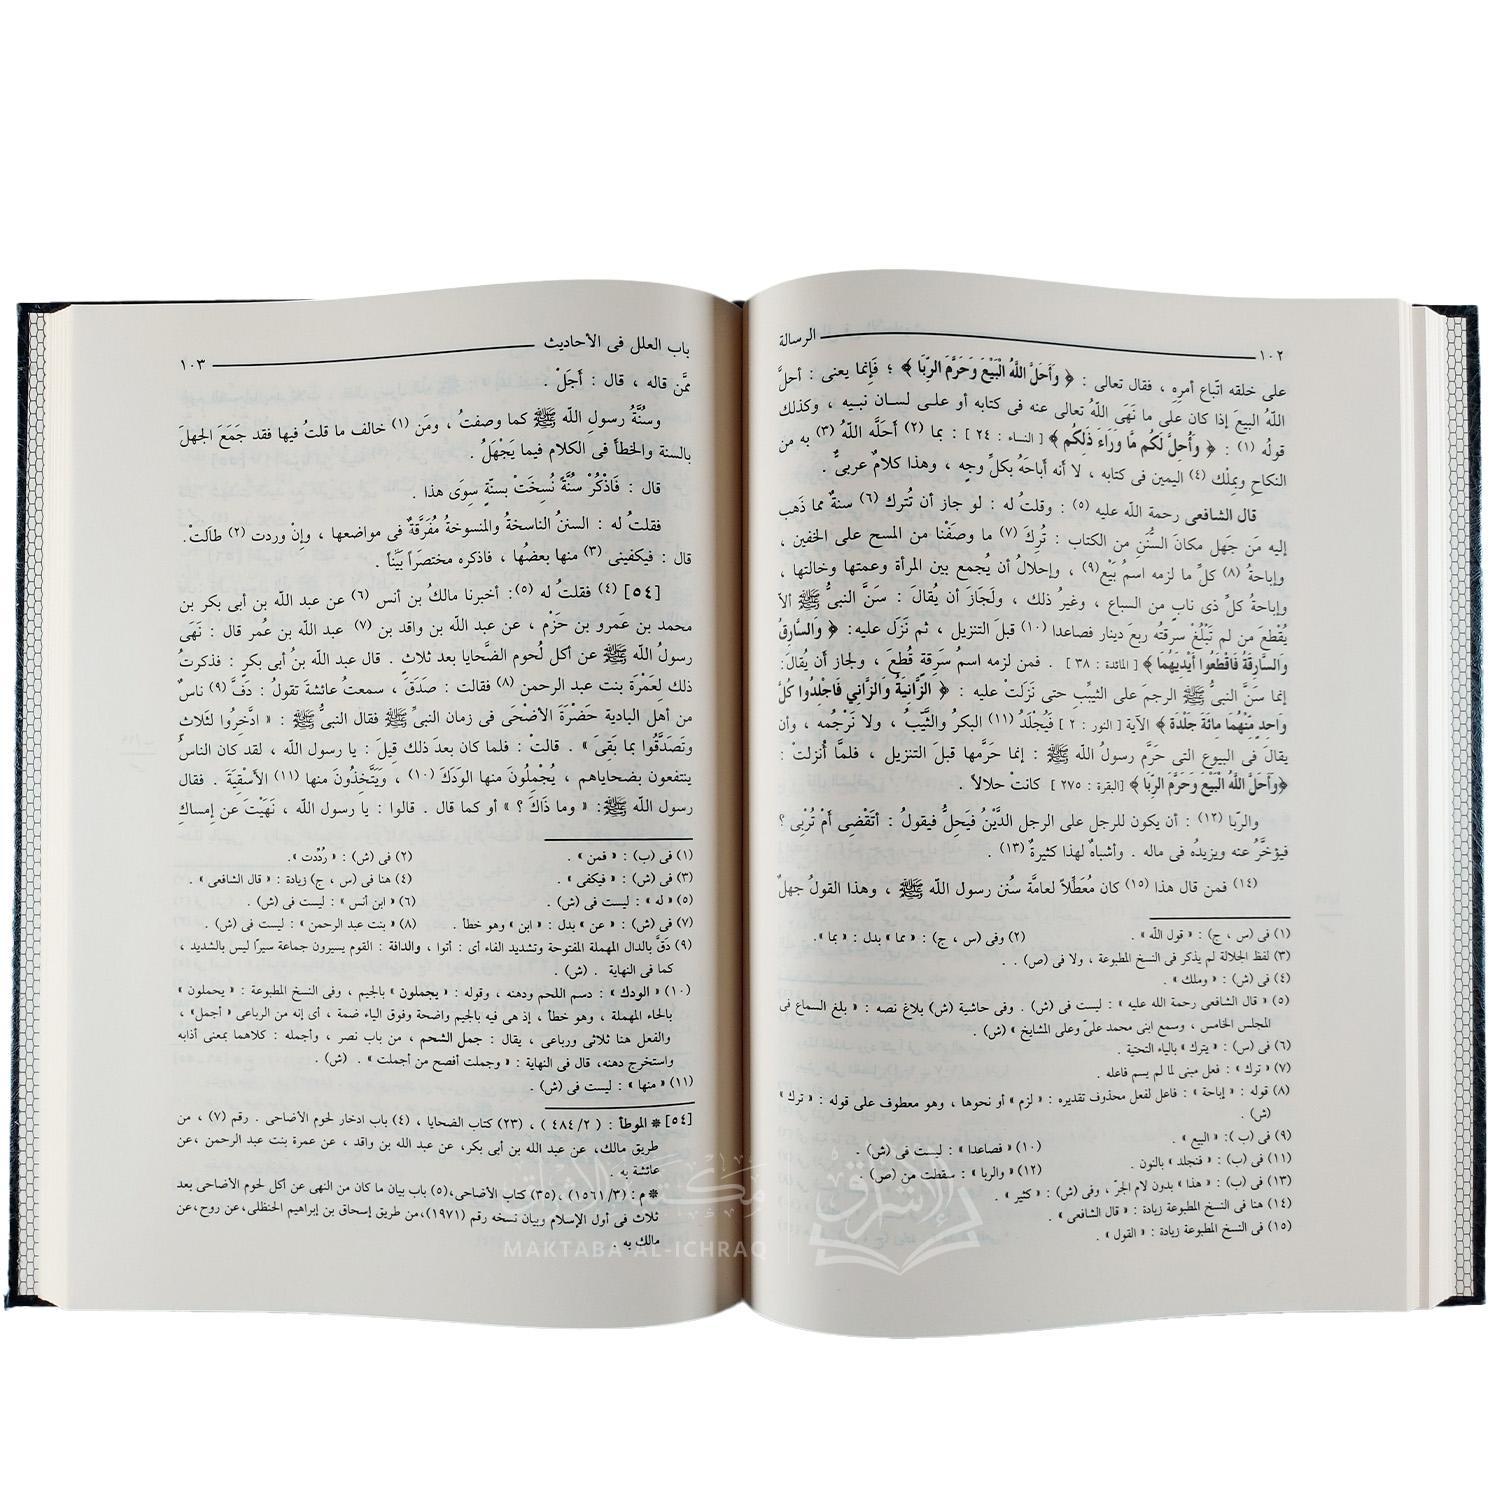 ١٠٢ الرسالة
على خلقه اتّباع أمرِه ، فقال تعالى : ﴿ وَأَحَلَّ اللَّهُ الْبَيْعَ وَحَرَّمَ الرِّبَا ﴾ ؛ فَإِنما يعنى : أحلَّ
اللَّهُ البيعَ إذا كان على ما نَهَى اللَّهُ تعالى عنه فى كتابه أو على لسان نبيه ، وكذلك
قولُه (١) : ﴿ وَأُحِلَّ لَكُم مَّا وَرَاءَ ذَلِكُم ﴾ [ النساء : ٢٤ ] : بما (٢) أحَله اللَّهُ (٣) به من
النكاحِ وبِمِلْك (٤) اليمين فى كتابه ، لا أنه أباحَهُ بكلِّ وجهٍ ، وهذا كلامٌ عربىٌّ .
قال الشافعى رحمة اللَّه عليه (٥) : وقلتُ له : لو جاز أن تُترك (٦) سنةٌ مما ذَهب
إليه مَن جَهِل مكانَ السُّنَنِ من الكتاب : تُرِكَ (٧) ما وصفْنا من المسح على الخفين ،
وإباحةُ (٨) كلِّ ما لزمه اسمُ بَيْع(٩) ، وإحلالُ أن يُجمع بين المرأة وعمتها وخالتها ،
وإباحةُ كلِّ ذى نابٍ من السباع ، وغيرُ ذلك ، ولَجَازَ أن يُقالَ : سَنَّ النبىُّ ﷺ ألاَّ
يُقْطعَ مَن لم تَبْلُغْ سرقتُه ربعَ دينار فصاعدا (١٠) قبلَ التنزيل ، ثم نَزَل عليه: ﴿ وَالسَّارِقُ
وَالسَّارِقَةُ فَاقْطَعُوا أَيْدِيَهُمَا ﴾ [ المائدة : ٣٨ ] . فمن لزمه اسمُ سَرِقة قُطعَ ، ولجاز أن يُقالَ:
إنما سَنَّ النبىُّ ﷺ الرجمَ على الثيِّبِ حتى نَزَلَتْ عليه : ﴿ الزَّانِيَةُ وَالزَّانِي فَاجْلِدُوا كُلَّ
وَاحِدٍ مِّنْهُمَا مِائَةَ جَلْدَةٍ ﴾ الآية [ النور : ٢ ] فَيُجْلَدُ (١١) البكرُ والثَّيِّبُ ، ولا نَرْجُمه ، وأن
يقالَ فى البيوعِ التى حَرَّم رسولُ اللَّه ﷺ : إنما حَرَّمها قبلَ التنزيل ، فلمَّا أُنزلتْ :
﴿وَأَحَلَّ اللَّهُ الْبَيْعَ وَحَرَّمَ الرِّبَا ﴾ [البقرة : ٢٧٥ ] كانتْ حلالاً .
والرِّبا (١٢) : أن يكون للرجل على الرجل الدَّيْنُ فيَحِلُّ فيقولُ : أتَقْضِى أمْ تُرْبِى ؟
فيؤخَّرُ عنه ويزيدُه فى ماله . وأشباهٌ لهذا كثيرةٌ (١٣) .
(١٤) فمن قال هذا (١٥) كان مُعَطِّلاً لعامَّة سُنن رسول اللَّه ﷺ ، وهذا القولُ جهلٌ
(١) فى (س ، ج) : « قول اللَّه » . (٢) وفى (س ، ج) : « مما » بدل : « بما ».
(٣) لفظ الجلالة لم يذكر فى النسخ المطبوعة ، ولا فى (ص) . .
(٤) فى (ش) : « وملك » .
(٥) « قال الشافعى رحمة اللَّه عليه » : ليست فى (ش) . وفى حاشية (ش) بلاغ نصه : « بلغ السماع فى
المجلس الخامس ، وسمع ابنى محمد علىّ وعلى المشايخ » (ش) .
(٦) فى (س) : « يترك » بالياء التحتية .
(٧) « ترك » : فعل مبنى لما لم يسم فاعله .
(٨) قوله : « إباحة » : فاعل لفعل محذوف تقديره : « لزم » أو نحوها ، وهو معطوف على قوله : « ترك »
(ش) .
(٩) فى (ب ): « البيع » . (١٠) « فصاعدا » : ليست فى (ش) .
(١١) فى (ب) : « فنجلد » بالنون . (١٢) « والربا » : سقطت من (ص) .
(١٣) فى (ب) : « هذا » بدون لام الجرّ ، وفى (ش) : « كثير » .
(١٤) هنا فى النسخ المطبوعة زيادة : « قال الشافعى » .
(١٥) فى النسخ المطبوعة زيادة : « القول » .
باب العلل فى الأحاديث ١٠٣
ممَّن قاله ، قال : أجَلْ .
وسُنَّةُ رسولِ اللَّه ﷺ كما وصفتُ ، ومَن (١) خالف ما قلتُ فيها فقد جَمَعَ الجهلَ
بالسنة والخطأَ فى الكلام فيما يَجْهَلُ .
قال : فَاذْكُرْ سُنَّةً نُسِخَتْ بسنّةٍ سِوَى هذا .
فقلتُ له : السننُ الناسخةُ والمنسوخةُ مُفَرَّقةٌ فى مواضعها ، وإنْ وردت (٢) طالَتْ.
قال : فيكفينى (٣) منها بعضُها ، فاذكره مختصراً بَيِّناً .
[٥٤] (٤) فقلتُ له (٥): أخبرنا مالكُ بن أنس (٦) عن عبد اللَّه بن أبى بكر بن
محمد بن عَمرو بن حَزْمٍ ، عن عبد اللَّه بن واقد بن (٧) عبد اللَّه بن عُمر قال : نَهَى
رسولُ اللَّه ﷺ عن أكل لُحوم الضَّحايا بعد ثلاثٍ . قال عبد اللَّه بنُ أبى بكرٍ : فذكرتُ
ذلك لِعَمْرَةَ بنت عبد الرحمن (٨) فقالت : صدَقَ ، سمعتُ عائشةَ تقولُ : دَفَّ (٩) ناسٌ
من أهل البادية حَضْرَةَ الأضْحَى فى زمان النبىِّ ﷺ فقال النبىُّ ﷺ : « ادَّخِرُوا لثَلاث
وتَصَدَّقُوا بما بَقِىَ » . قالتْ : فلما كان بعدَ ذلك قِيلَ : يا رسول اللَّه ، لقد كان الناسُ
ينتفعون بضحاياهم ، يُجْمِلُونَ منها الوَدَكَ (١٠) ، وَيَتَّخِذُونَ منها (١١) الأسْقِيَةَ . فقال
رسول اللَّه ﷺ: « وما ذَاكَ ؟ » أو كما قال . قالوا : يا رسول اللَّه ، نَهَيْتَ عن إمساكِ
(١) فى (ب) : « فمن » . (٢) فى (ش) : « رُدِّدت ».
(٣) فى (ش) : « فيكفى » . (٤) هنا فى (س ، ج) زيادة : « قال الشافعى » .
(٥) « له » : ليست فى (ش) . (٦) « ابن أنس » : ليست فى (ش) .
(٧) فى (ش) : « عن » بدل : « ابن » وهو خطأ . (٨) « بنت عبد الرحمن » : ليست فى (ش) .
(٩) دَفَّ بالدال المهملة المفتوحة وتشديد الفاء أى : أتوا ، والدافة : القوم يسيرون جماعة سيرًا ليس بالشديد ،
كما فى النهاية . (ش) .
(١٠) « الودك » : دسم اللحم ودهنه ، وقوله : « يجملون » بالجيم ، وفى النسخ المطبوعة : « يحملون »
بالحاء المهملة ، وهو خطأ ، إذ هى فيه بالجيم واضحة وفوق الياء ضمة ، أى إنه من الرباعى « أجمل» ،
والفعل هنا ثلاثى ورباعى ، يقال : جمل الشحم ، من باب نصر ، وأجمله : كلاهما بمعنى أذابه
واستخرج دهنه، قال فى النهاية : « وجملت أفصح من أجملت » . (ش) .
(١١) « منها » : ليست فى (ش) .
[٥٤] * الموطأ : (٢/ ٤٨٤ ) ، (٢٣) كتاب الضحايا ، (٤) باب ادخار لحوم الأضاحى . رقم (٧) ، من
طريق مالك، عن عبد اللَّه بن أبى بكر، عن عبد اللَّه بن واقد ، عن عمرة بنت عبد الرحمن ،عن
عائشة به .
* م : (٣/ ١٥٦١) ، (٣٥) كتاب الأضاحى،(٥) باب بيان ما كان من النهى عن أكل لحوم الأضاحى بعد
ثلاث فى أول الإسلام وبيان نسخه رقم (١٩٧١)،من طريق إسحاق بن إبراهيم الحنظلى،عن روح،عن
مالك به .
مكتبة الإشراق
MAKTABA AL-ICHRAQ
الإشراق